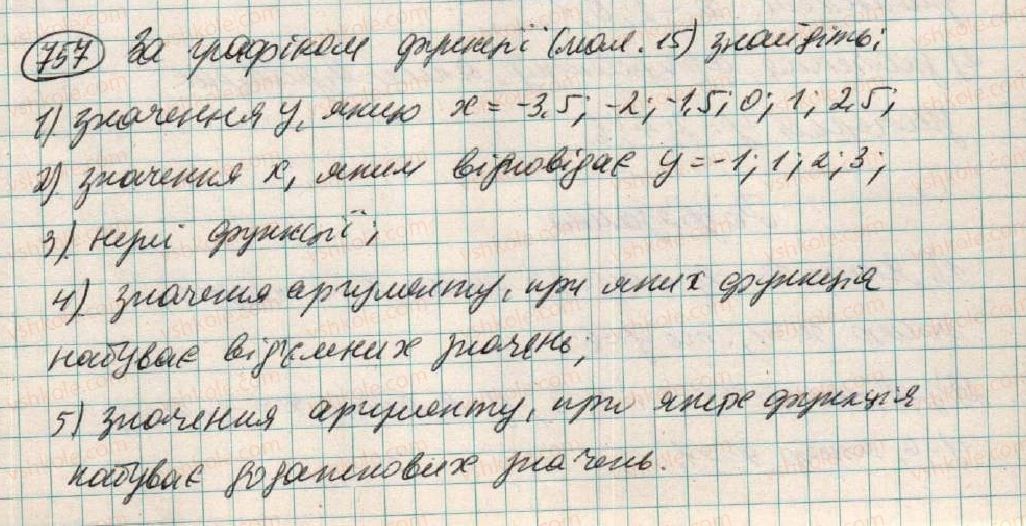 757 За графіком функції (мал. 15) знайдіть:
1) значення y, якщо x = -3,5; -2; -1,5; 0; 1; 2,5;
2) значення x, яким відповідає y = -1; 1; 2; 3;
3) нулі функції;
4) значення аргументу, при яких функція
набуває від'ємних значень;
5) значення аргументу, при яких функція
набуває додатнових значень.